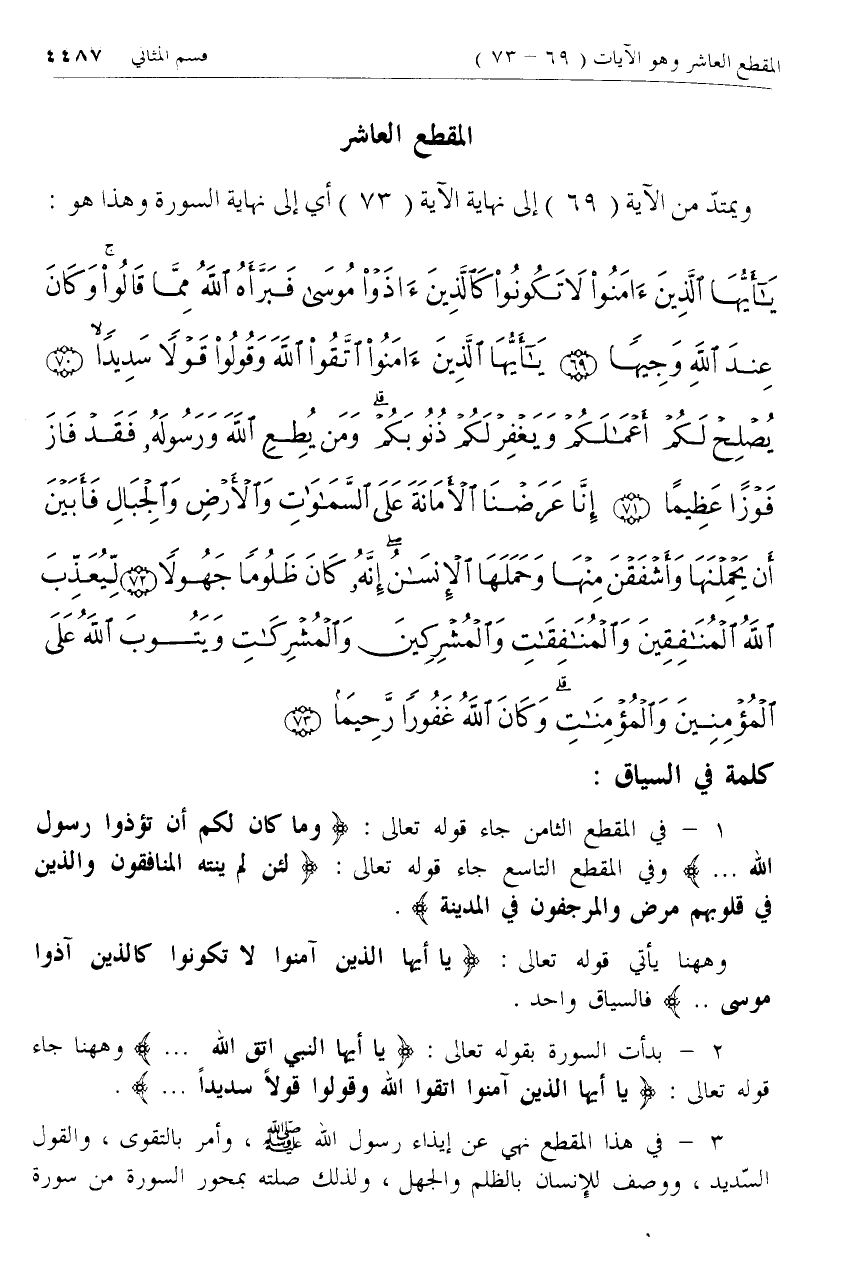 المقطع العاشر وهو الآيات ( ٦٩ - ٧٣ ) قسم المثاني ٤٤٨٧
المقطع العاشر
ويمتدّ من الآية ( ٦٩ ) إلى نهاية الآية ( ٧٣ ) أي إلى نهاية السورة وهذا هو :
يَٰٓأَيُّهَا ٱلَّذِينَ ءَامَنُوا۟ لَا تَكُونُوا۟ كَٱلَّذِينَ ءَاذَوْا۟ مُوسَىٰ فَبَرَّأَهُ ٱللَّهُ مِمَّا قَالُوا۟ۚ وَكَانَ
عِندَ ٱللَّهِ وَجِيهًا ﴿٦٩﴾ يَٰٓأَيُّهَا ٱلَّذِينَ ءَامَنُوا۟ ٱتَّقُوا۟ ٱللَّهَ وَقُولُوا۟ قَوْلًا سَدِيدًاۙ ﴿٧٠﴾
يُصْلِحْ لَكُمْ أَعْمَٰلَكُمْ وَيَغْفِرْ لَكُمْ ذُنُوبَكُمْۗ وَمَن يُطِعِ ٱللَّهَ وَرَسُولَهُۥ فَقَدْ فَازَ
فَوْزًا عَظِيمًا ﴿٧١﴾ إِنَّا عَرَضْنَا ٱلْأَمَانَةَ عَلَى ٱلسَّمَٰوَٰتِ وَٱلْأَرْضِ وَٱلْجِبَالِ فَأَبَيْنَ
أَن يَحْمِلْنَهَا وَأَشْفَقْنَ مِنْهَا وَحَمَلَهَا ٱلْإِنسَٰنُۖ إِنَّهُۥ كَانَ ظَلُومًا جَهُولًا ﴿٧٢﴾ لِّيُعَذِّبَ
ٱللَّهُ ٱلْمُنَٰفِقِينَ وَٱلْمُنَٰفِقَٰتِ وَٱلْمُشْرِكِينَ وَٱلْمُشْرِكَٰتِ وَيَتُوبَ ٱللَّهُ عَلَى
ٱلْمُؤْمِنِينَ وَٱلْمُؤْمِنَٰتِۗ وَكَانَ ٱللَّهُ غَفُورًا رَّحِيمًۢا ﴿٧٣﴾
كلمة في السياق :
١ - في المقطع الثامن جاء قوله تعالى : ﴿ وما كان لكم أن تؤذوا رسول
الله ... ﴾ وفي المقطع التاسع جاء قوله تعالى : ﴿ لئن لم ينته المنافقون والذين
في قلوبهم مرض والمرجفون في المدينة ﴾ .
وههنا يأتي قوله تعالى : ﴿ يا أيها الذين آمنوا لا تكونوا كالذين آذوا
موسى .. ﴾ فالسياق واحد .
٢ - بدأت السورة بقوله تعالى : ﴿ يا أيها النبي اتق الله ... ﴾ وههنا جاء
قوله تعالى : ﴿ يا أيها الذين آمنوا اتقوا الله وقولوا قولاً سديداً ... ﴾ .
٣ - في هذا المقطع نهي عن إيذاء رسول الله ﷺ ، وأمر بالتقوى ، والقول
السّديد ، ووصف للإنسان بالظلم والجهل ، ولذلك صلته بمحور السورة من سورة